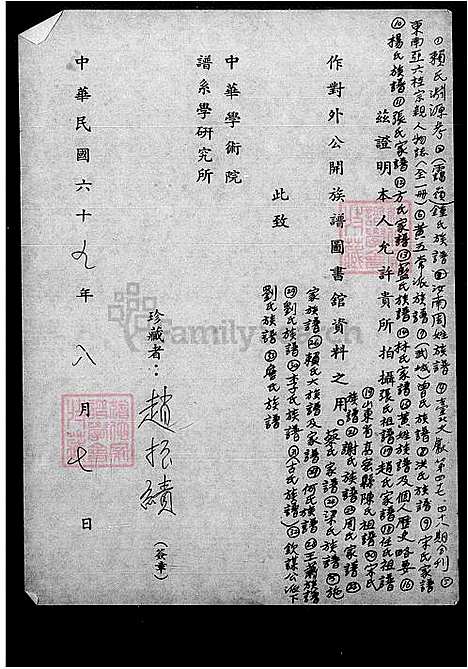 ①賴氏淵源考②(霞葛)鍾氏族譜③汝南周姓族譜④臺北文獻第四七、四十八期合刊⑤
東南亞六桂宗親人物誌(全一冊)⑥黃五常派族譜⑦武城曾氏族譜⑧洪氏族譜⑨宋氏家譜
⑩楊氏族譜⑪張氏家譜⑫方氏家譜⑬藍氏族譜⑭林氏家譜⑮黃姓族譜及個人歷史略要⑯
茲證明本人允許貴所拍攝張氏祖譜⑰趙氏家譜⑱任氏祖譜
⑲山東省高密縣陳氏祖譜⑳宋氏
作對外公開族譜圖書館資料之用。
族譜㉑謝氏族譜㉒周氏家譜㉓
蔡氏家譜㉔梁氏族譜㉕施
家族譜㉖賴氏大族譜及家譜㉗何氏族譜㉘王氏族譜
此致
㉙劉氏族譜㉚李氏族譜㉛(古氏族譜)㉜欽謨公派下
劉氏族譜㉝詹氏族譜
中華學術院
譜系學研究所
珍藏者:趙振績(簽章)
中華民國六十九年八月七日
FamilySearch